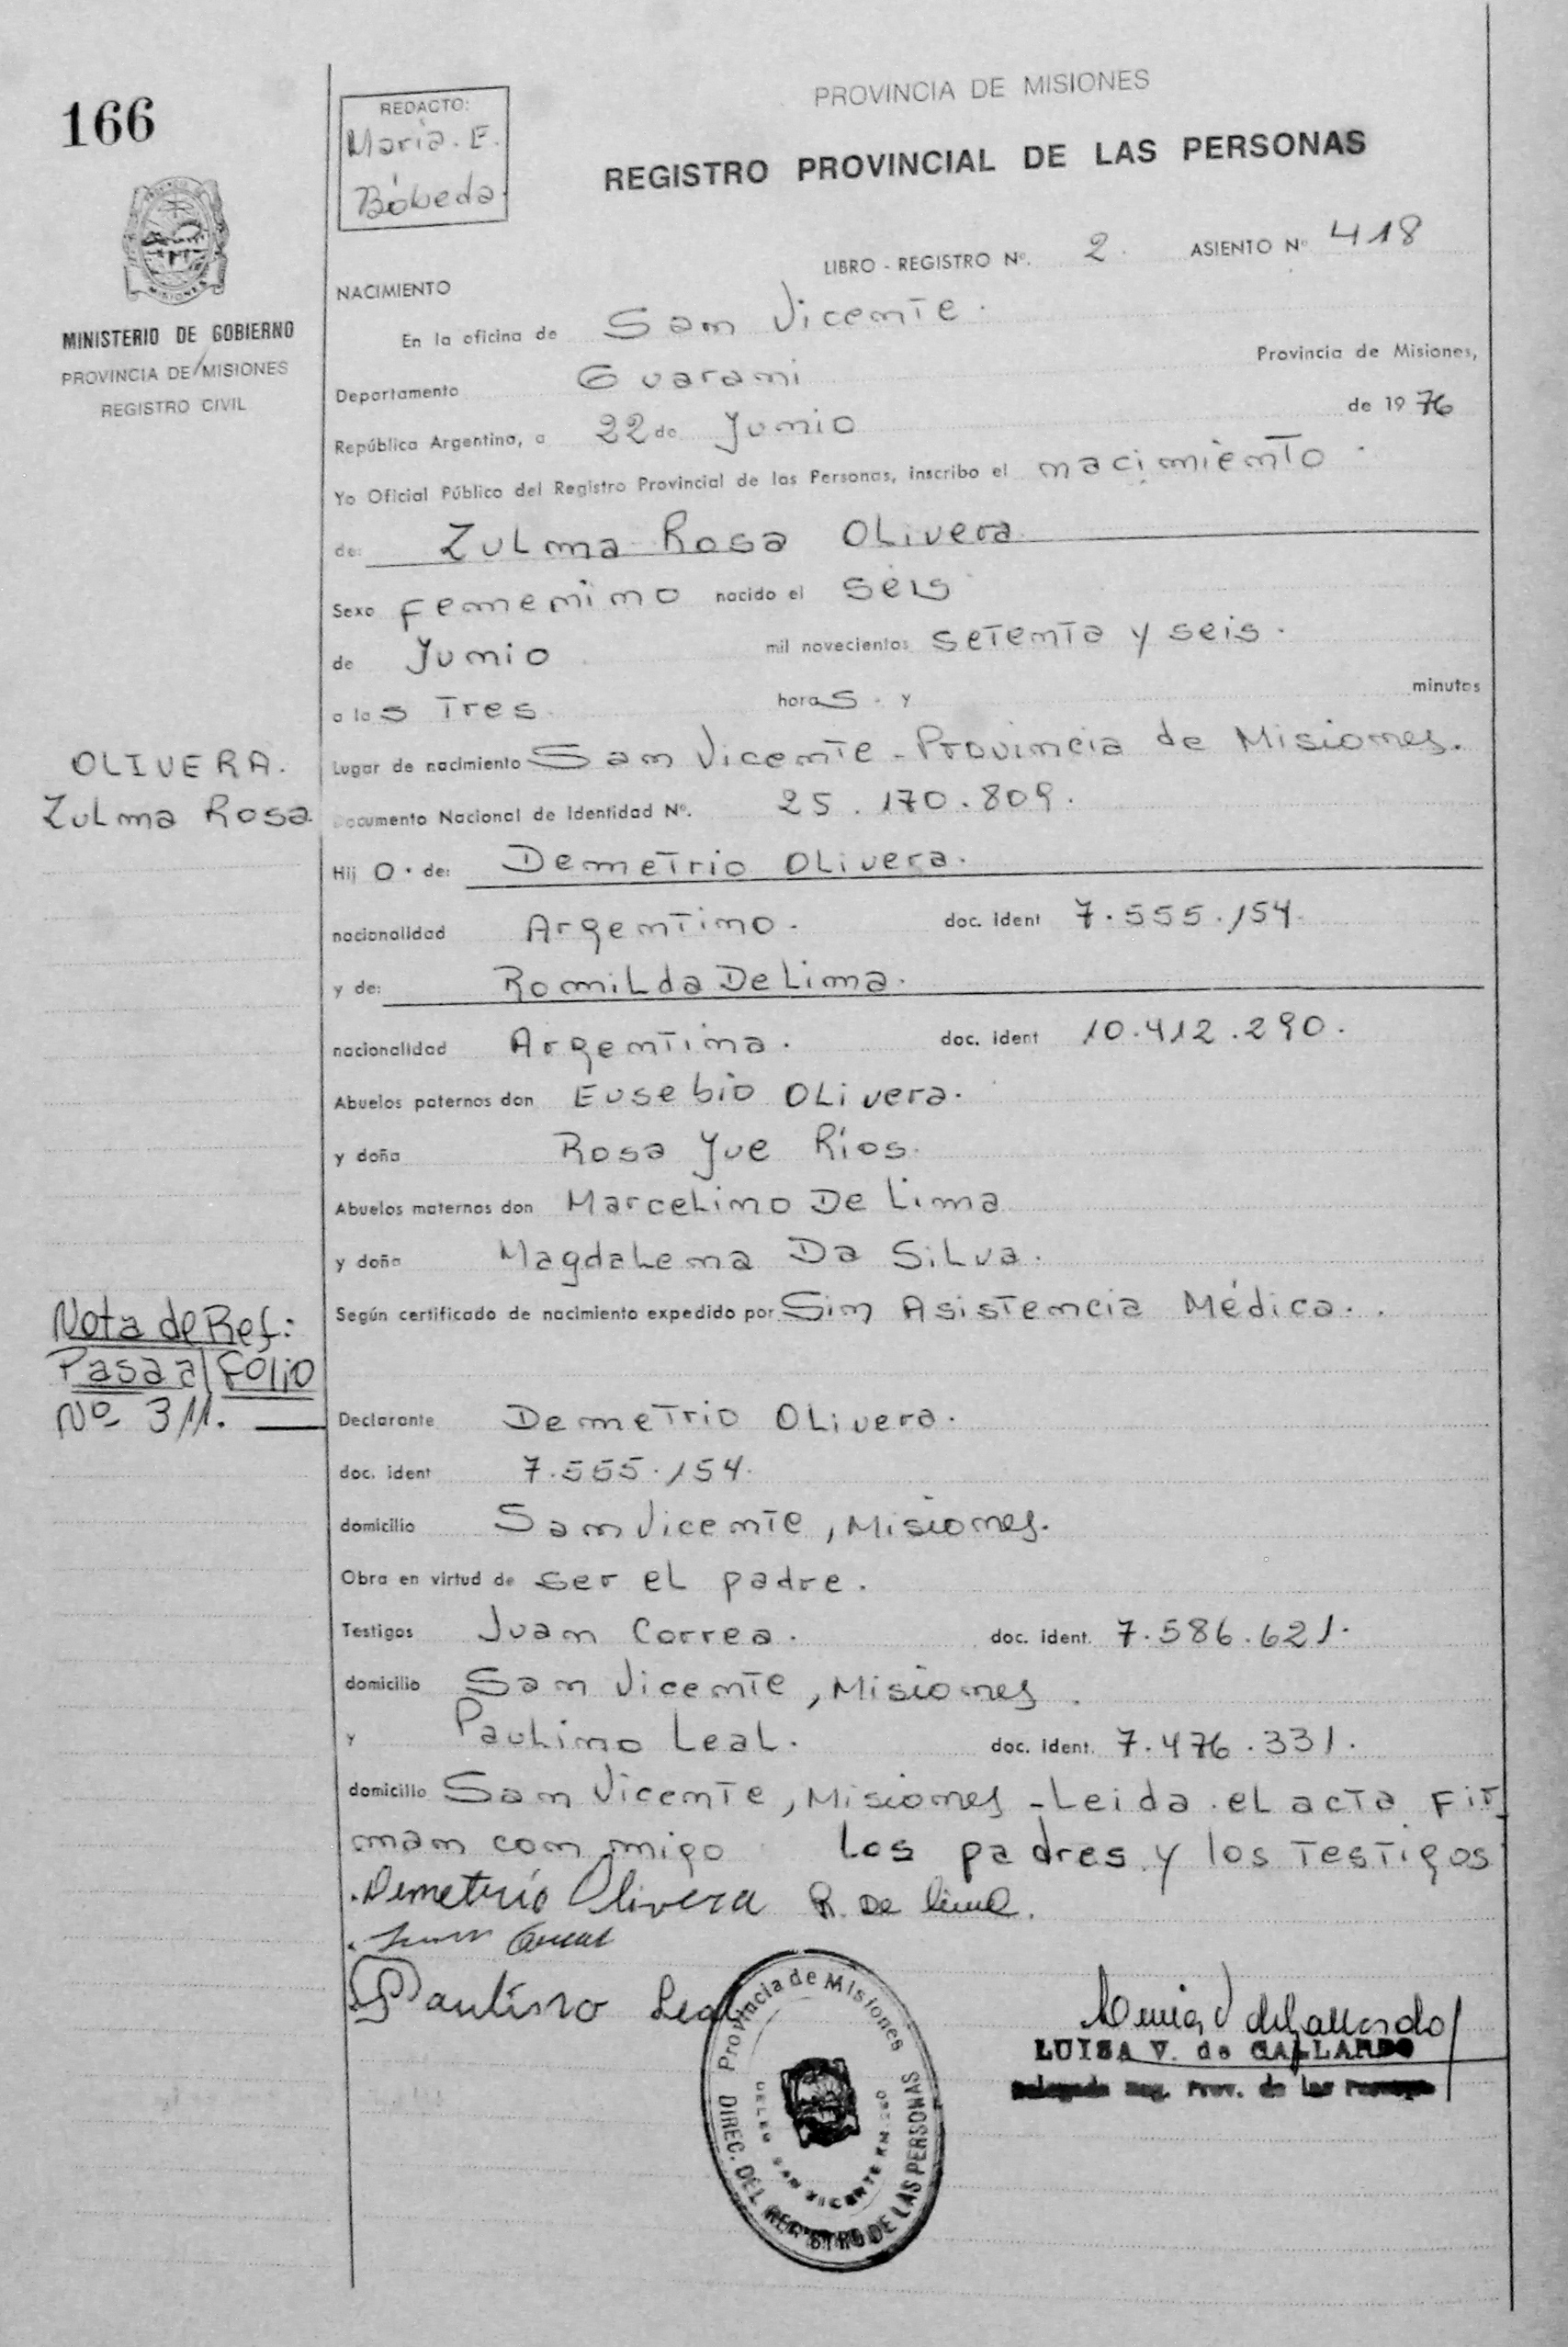 166
REDACTO:
Maria. E.
Bóbeda.
PROVINCIA DE MISIONES
REGISTRO PROVINCIAL DE LAS PERSONAS
LIBRO - REGISTRO Nº. 2. ASIENTO Nº 418
MISIONES
MINISTERIO DE GOBIERNO
PROVINCIA DE MISIONES
REGISTRO CIVIL
NACIMIENTO
En la oficina de San Vicente.
Departamento Guarani Provincia de Misiones,
República Argentina, a 22 de Junio de 1976
Yo Oficial Público del Registro Provincial de las Personas, inscribo el nacimiento.
de: Zulma Rosa Olivera
Sexo femenino nacido el seis
de Junio mil novecientos setenta y seis.
a las Tres horas. y minutos
Lugar de nacimiento San Vicente - Provincia de Misiones.
OLIVERA.
Zulma Rosa.
Documento Nacional de Identidad Nº. 25.170.809.
Hij o. de: Demetrio Olivera.
nacionalidad Argentino. doc. ident 7.555.154.
y de: Romilda De Lima.
nacionalidad Argentina. doc. ident 10.412.290.
Abuelos paternos don Eusebio Olivera.
y doña Rosa Jue Ríos.
Abuelos maternos don Marcelino De Lima
y doña Magdalena Da Silva.
Según certificado de nacimiento expedido por Sin Asistencia Médica..
Nota de Ref:
Pasa al folio
Nº 311.
Declarante Demetrio Olivera.
doc. ident 7.555.154.
domicilio San Vicente, Misiones.
Obra en virtud de ser el padre.
Testigos Juan Correa. doc. ident. 7.586.621.
domicilio San Vicente, Misiones.
y Paulino Leal. doc. ident. 7.476.331.
domicilio San Vicente, Misiones - Leida el acta fir
man con migo los padres y los testigos
Demetrio Olivera R. De Lima.
Paulino Leal
Provincia de Misiones
DELEG. SAN VICENTE KM.
DIREC. DEL REGISTRO DE LAS PERSONAS
LUISA V. de GALLARDO
Delegada Reg. Prov. de las Personas